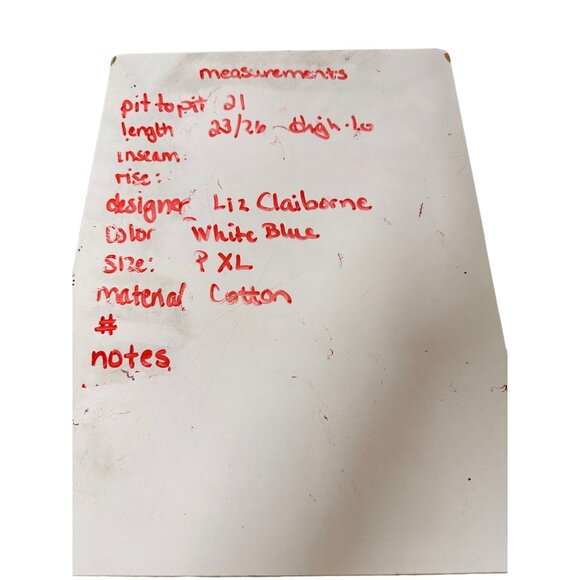 measurements
pit to pit 21
length 23/26 high-lo
inseam:
rise:
designer Liz Claiborne
Color White Blue
Size: P XL
material Cotton
#
notes